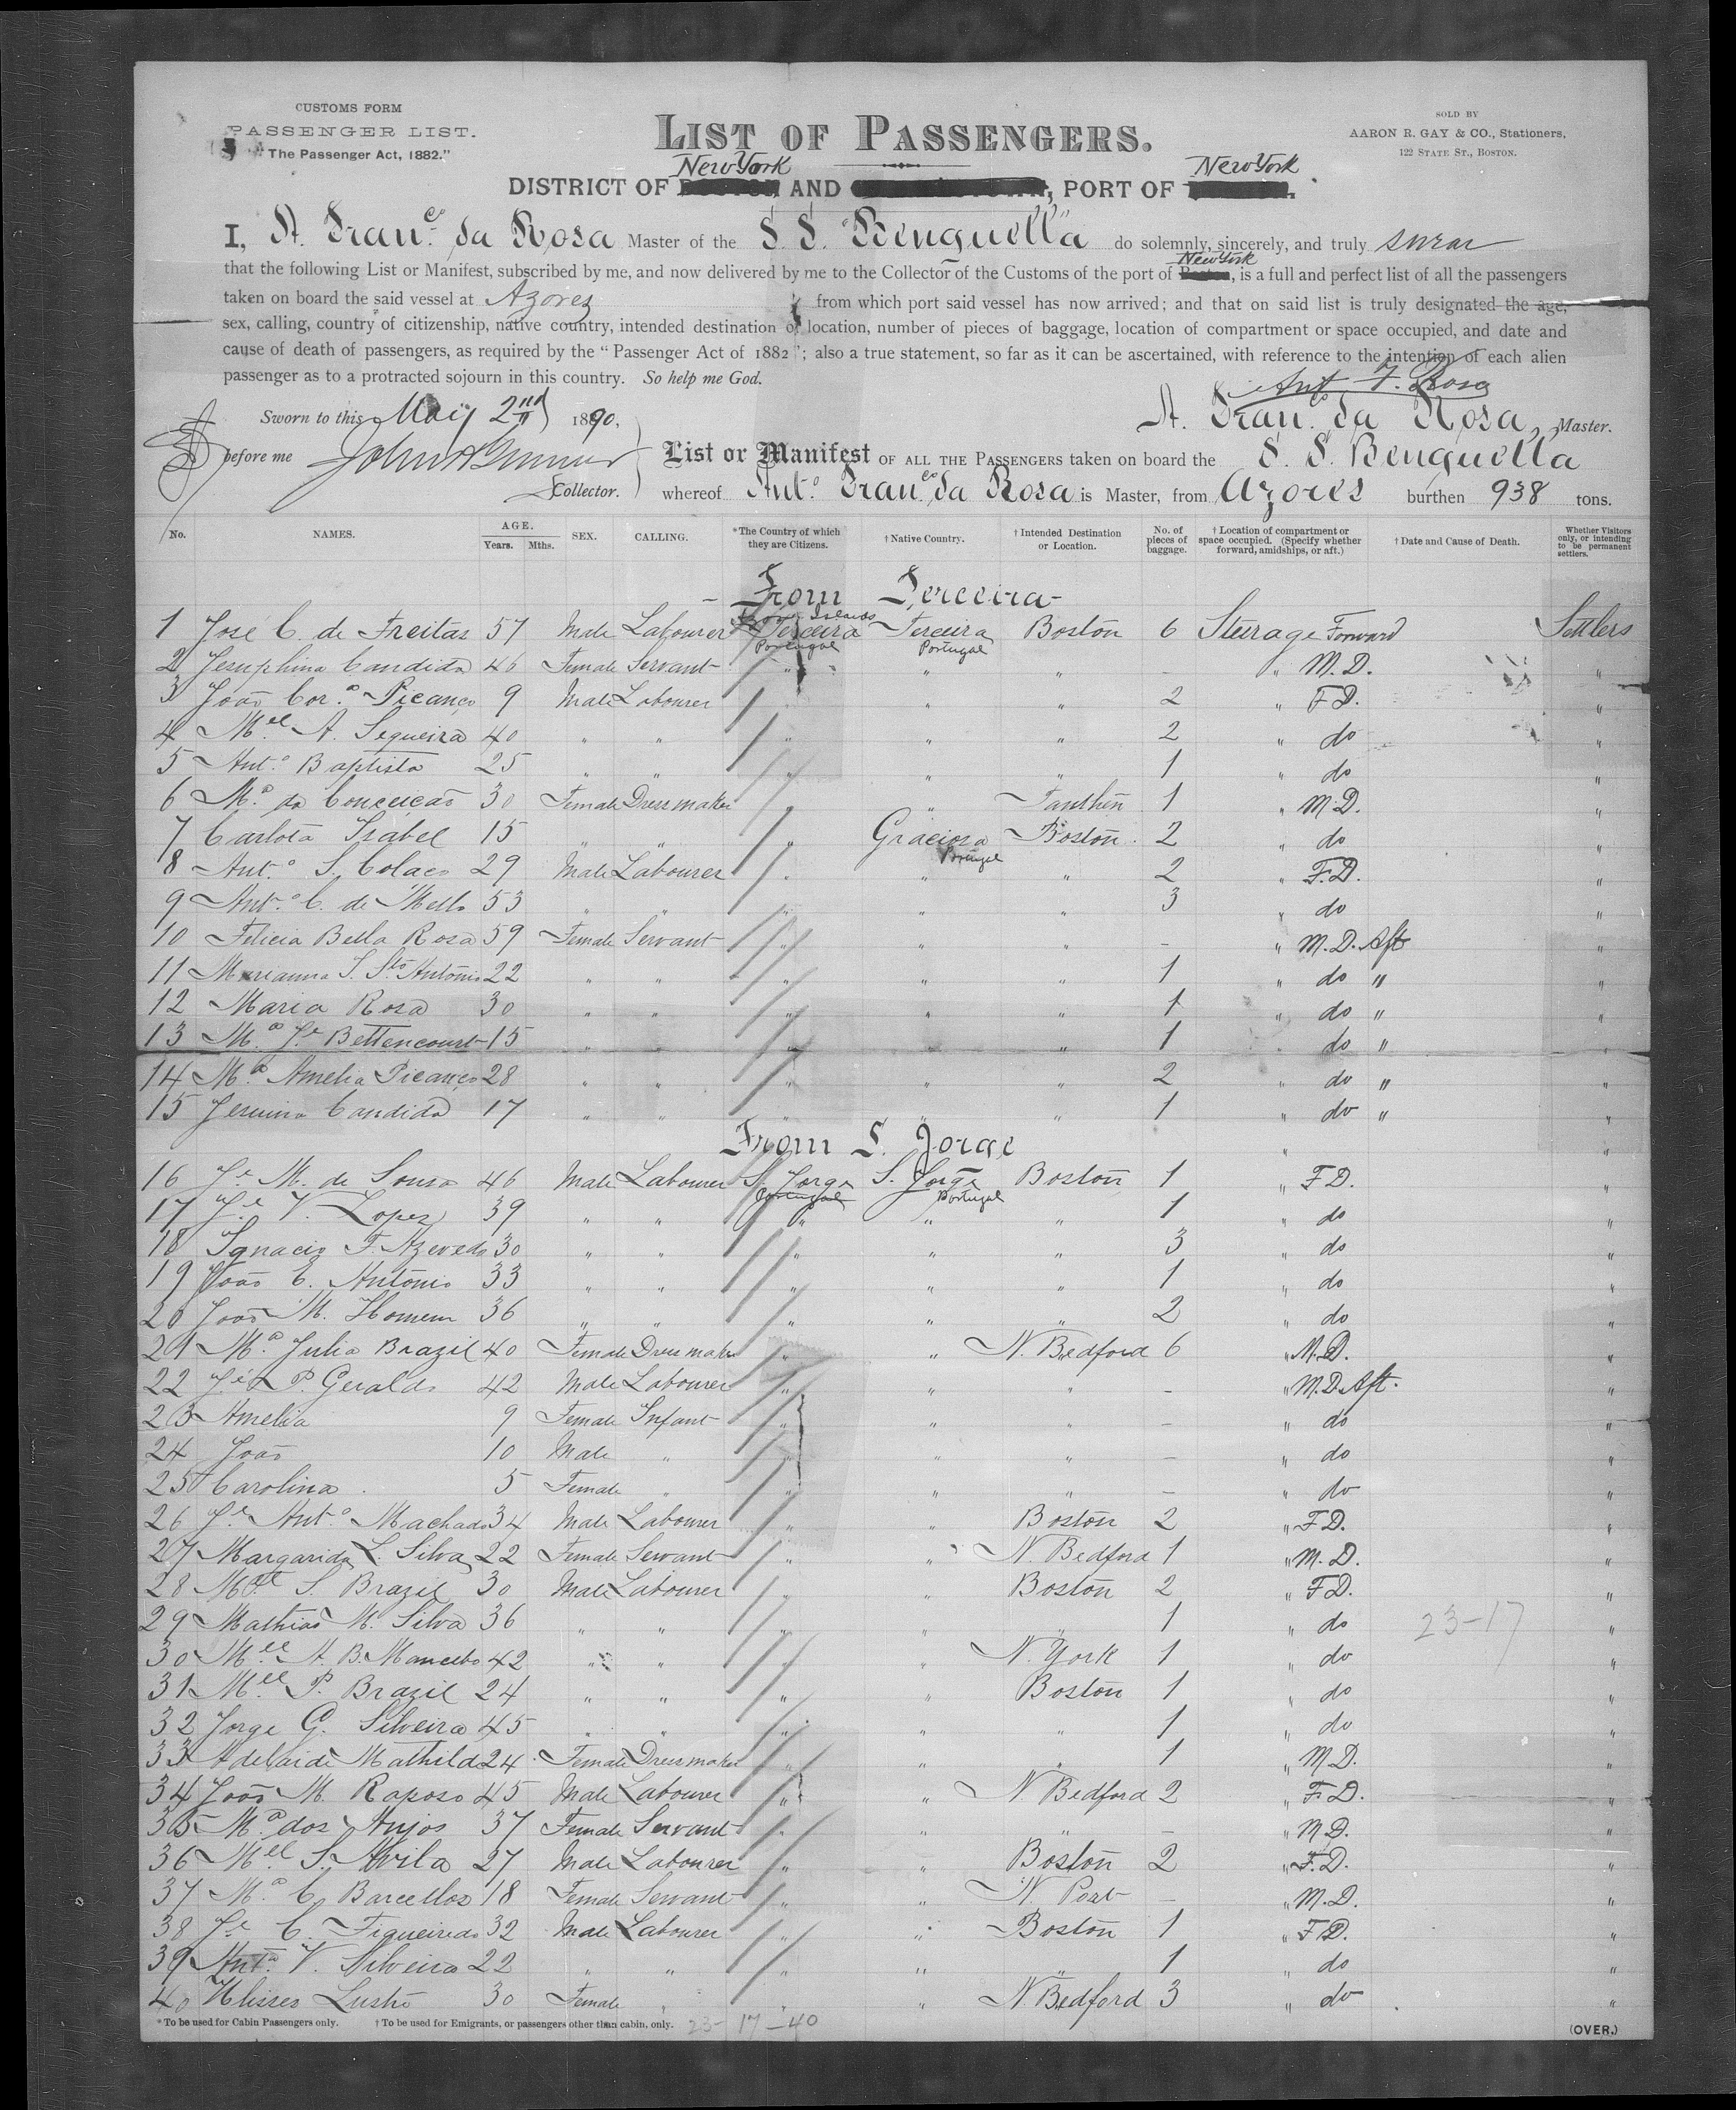 CUSTOMS FORM
PASSENGER LIST.
"The Passenger Act, 1882."
LIST OF PASSENGERS.
SOLD BY
AARON R. GAY & CO., Stationers,
122 STATE ST., BOSTON.
New York New York
DISTRICT OF AND , PORT OF .
I, A. Fran.co da Rosa Master of the S. S. "Benguella" do solemnly, sincerely, and truly swear
that the following List or Manifest, subscribed by me, and now delivered by me to the Collector of the Customs of the port of New York, is a full and perfect list of all the passengers
taken on board the said vessel at Azores from which port said vessel has now arrived; and that on said list is truly designated the age,
sex, calling, country of citizenship, native country, intended destination or location, number of pieces of baggage, location of compartment or space occupied, and date and
cause of death of passengers, as required by the "Passenger Act of 1882"; also a true statement, so far as it can be ascertained, with reference to the intention of each alien
passenger as to a protracted sojourn in this country. So help me God.
Ant F. Rosa
Sworn to this May 2nd 1890, A. Fran.co da Rosa, Master.
before me Collector.
List or Manifest OF ALL THE PASSENGERS taken on board the S. S. Benguella
whereof Ant.o Fran.co da Rosa is Master, from Azores burthen 938 tons.
No. NAMES. AGE. Years. Mths. SEX. CALLING. *The Country of which they are Citizens. †Native Country. †Intended Destination or Location. No. of pieces of baggage. †Location of compartment or space occupied. (Specify whether forward, amidships, or aft.) †Date and Cause of Death. Whether Visitors only, or intending to be permanent settlers.
From Terceira
1 José C. de Freitas 57 Male Labourer Terceira Portugal Terceira Portugal Boston 6 Steerage Forward Settlers
2 Jesuphina Candida 46 Female Servant " " " - " M.D. "
3 João Cor.a Picanço 9 Male Labourer " " 2 " F.D. "
4 M.el A. Sequeira 40 " " " " 2 " do "
5 Ant.o Baptista 25 " " " " " 1 " do "
6 M.a da Conceicão 30 Female Dressmaker " " 1 " M.D. "
7 Carlota Isabel 15 " " " Graciosa Portugal Boston 2 " do "
8 Ant.o S. Colaço 29 Male Labourer " " " 2 " F.D. "
9 Ant.o C. de Mello 53 " " " " " 3 " do "
10 Felicia Bella Rosa 59 Female Servant " " " - " M.D. Aft "
11 Marianna S. Sto Antonio 22 " " " " " 1 " do " "
12 Maria Rosa 30 " " " " " 1 " do " "
13 M.a J.e Bettencourt 15 " " " " " 1 " do " "
14 M.a Amelia Picanço 28 " " " " " 2 " do " "
15 Candida 17 " " " " " 1 " do " "
From S. Jorge
16 J.e M. de Sousa 46 Male Labourer S. Jorge Portugal S. Jorge Portugal Boston 1 " F.D. "
17 J.e V. Lopez 39 " " " " " 1 " do "
18 Ignacio F. Azevedo 30 " " " " " 3 " do "
19 João C. Antonio 33 " " " " " 1 " do "
20 João M. Homem 36 " " " " " 2 " do "
21 M.a Julia Brazil 40 Female Dressmaker " " N. Bedford 6 " M.D. "
22 J.e P. Geraldo 42 Male Labourer " " " - " M.D. Aft. "
23 Amelia 9 Female Infant " " " - " do "
24 João 10 Male " " " " - " do "
25 Carolina 5 Female " " " " - " do "
26 J.e Ant.o Machado 34 Male Labourer " " Boston 2 " F.D. "
27 Margarida L. Silva 22 Female Servant " " N. Bedford 1 " M.D. "
28 M.el S. Brazil 30 Male Labourer " " Boston 2 " F.D. "
29 Mathias M. Silva 36 " " " " " 1 " do 23-17 "
30 M.el A. B. Mancebo 42 " " " " N. York 1 " do "
31 M.el P. Brazil 24 " " " " Boston 1 " do "
32 Jorge G. Silveira 45 " " " " " 1 " do "
33 Adelaide Mathilda 24 Female Dressmaker " " " 1 " M.D. "
34 João M. Raposo 45 Male Labourer " " N. Bedford 2 " F.D. "
35 M.a dos Anjos 37 Female Servant " " " - " M.D. "
36 M.el S. Avila 27 Male Labourer " " Boston 2 " F.D. "
37 M.a C. Barcellos 18 Female Servant " " N. Port - " M.D. "
38 J.e C. Figueiredo 32 Male Labourer " " Boston 1 " F.D. "
39 Ant.o V. Silveira 22 " " " " " 1 " do "
40 Ulisses 30 Female " " " N. Bedford 3 " do "
*To be used for Cabin Passengers only. †To be used for Emigrants, or passengers other than cabin, only. 23-17-40 (OVER.)